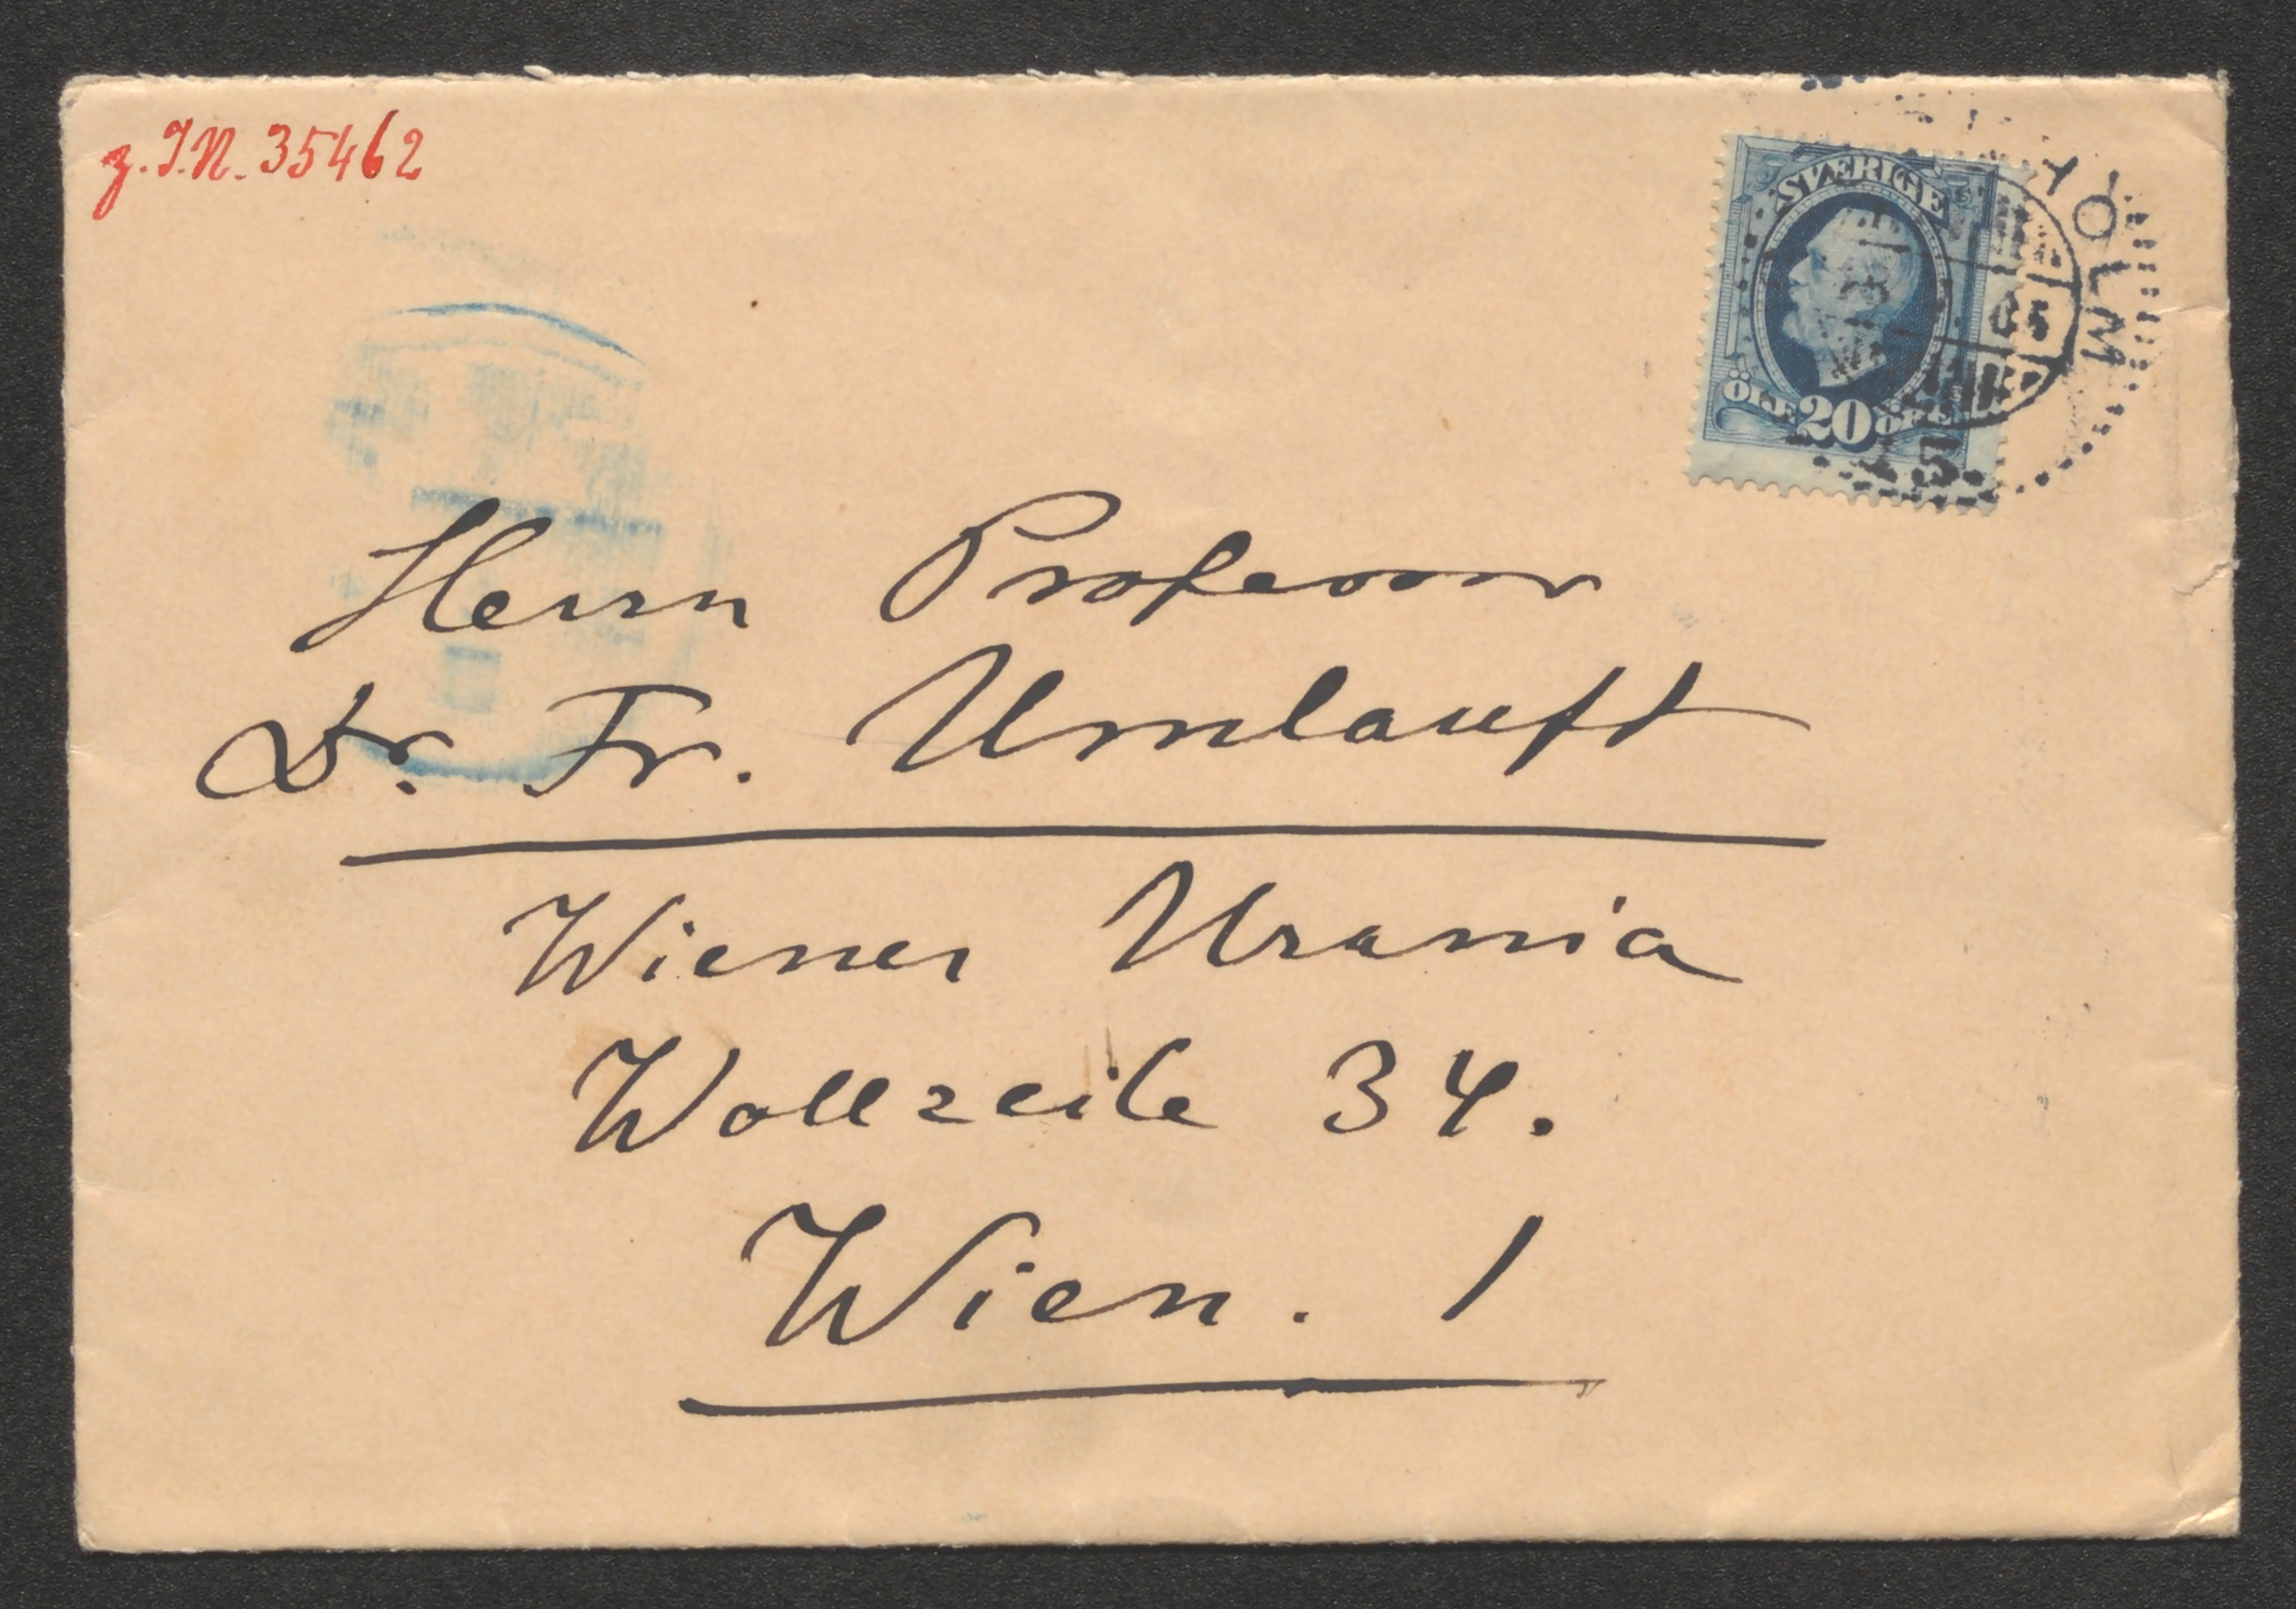 z. I.N. 35462
SVERIGE
ÖRE 20 ÖRE
HOLM
Herrn Professor
Dr. Fr. Umlauft
Wiener Urania
Wollzeile 34.
Wien. 1